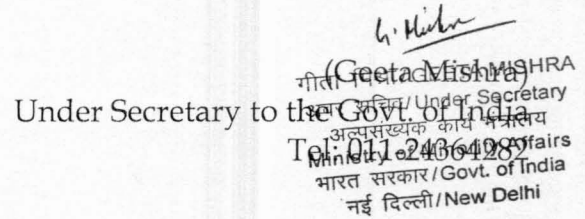 G. Mishra
(Geeta Mishra)
Under Secretary to the Govt. of India
Tel: 011-24364289
गीता मिश्रा/GEETA MISHRA
अवर सचिव/Under Secretary
अल्पसंख्यक कार्य मंत्रालय
Ministry of Minority Affairs
भारत सरकार/Govt. of India
नई दिल्ली/New Delhi